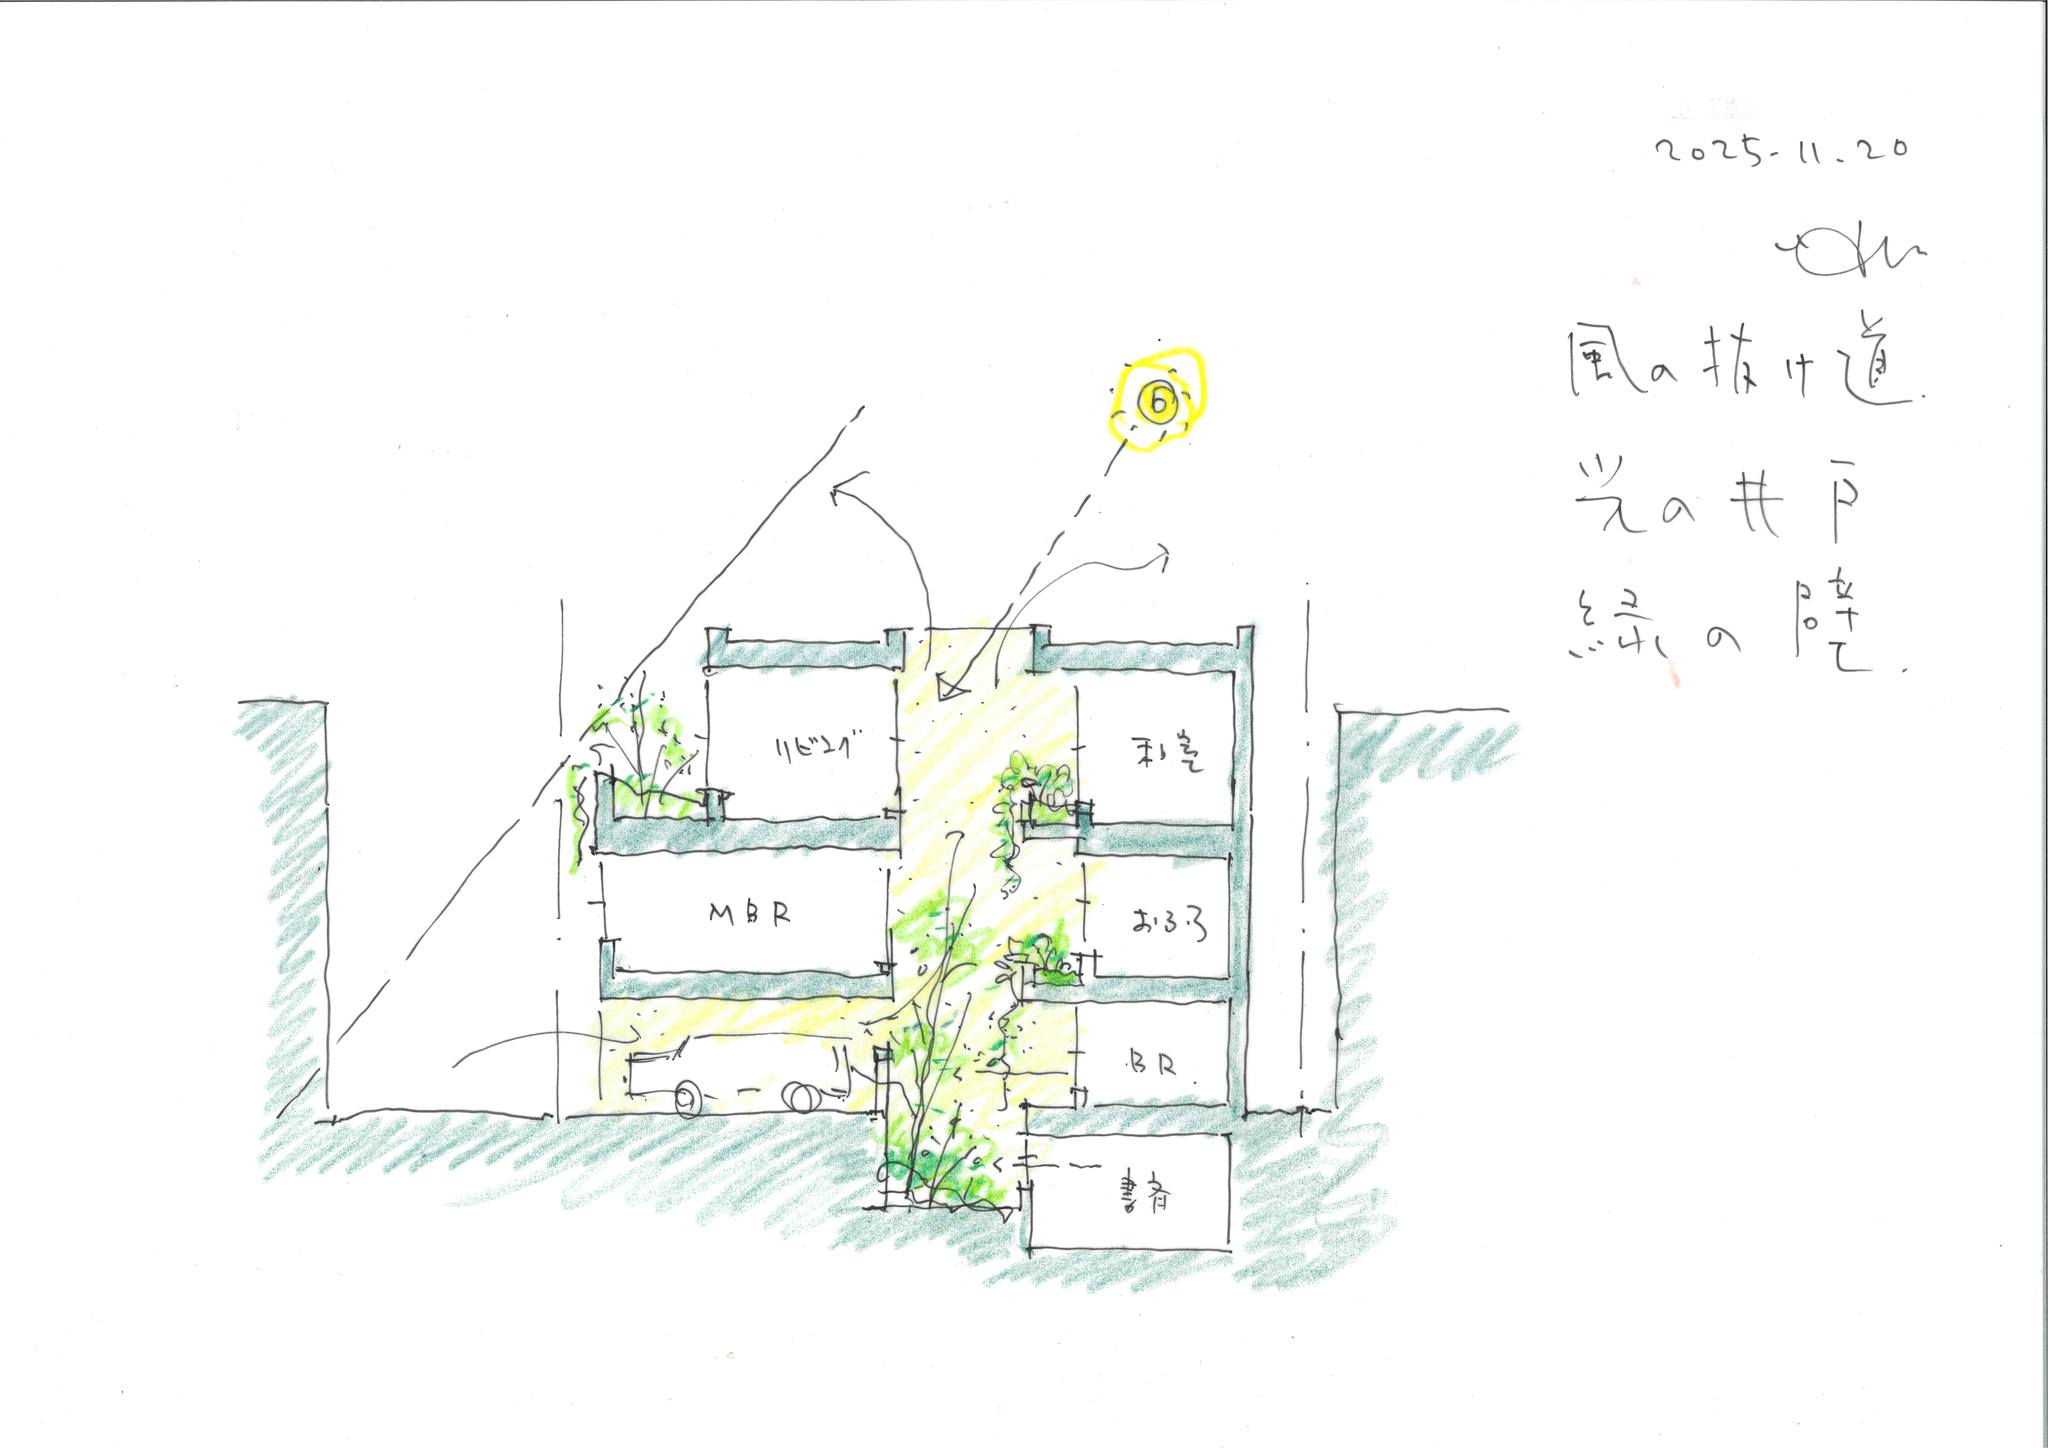 2025-11.20
風の抜け道.
光の井戸
緑の陸.
6
リビング
和室
MBR
おふろ
BR.
書斎